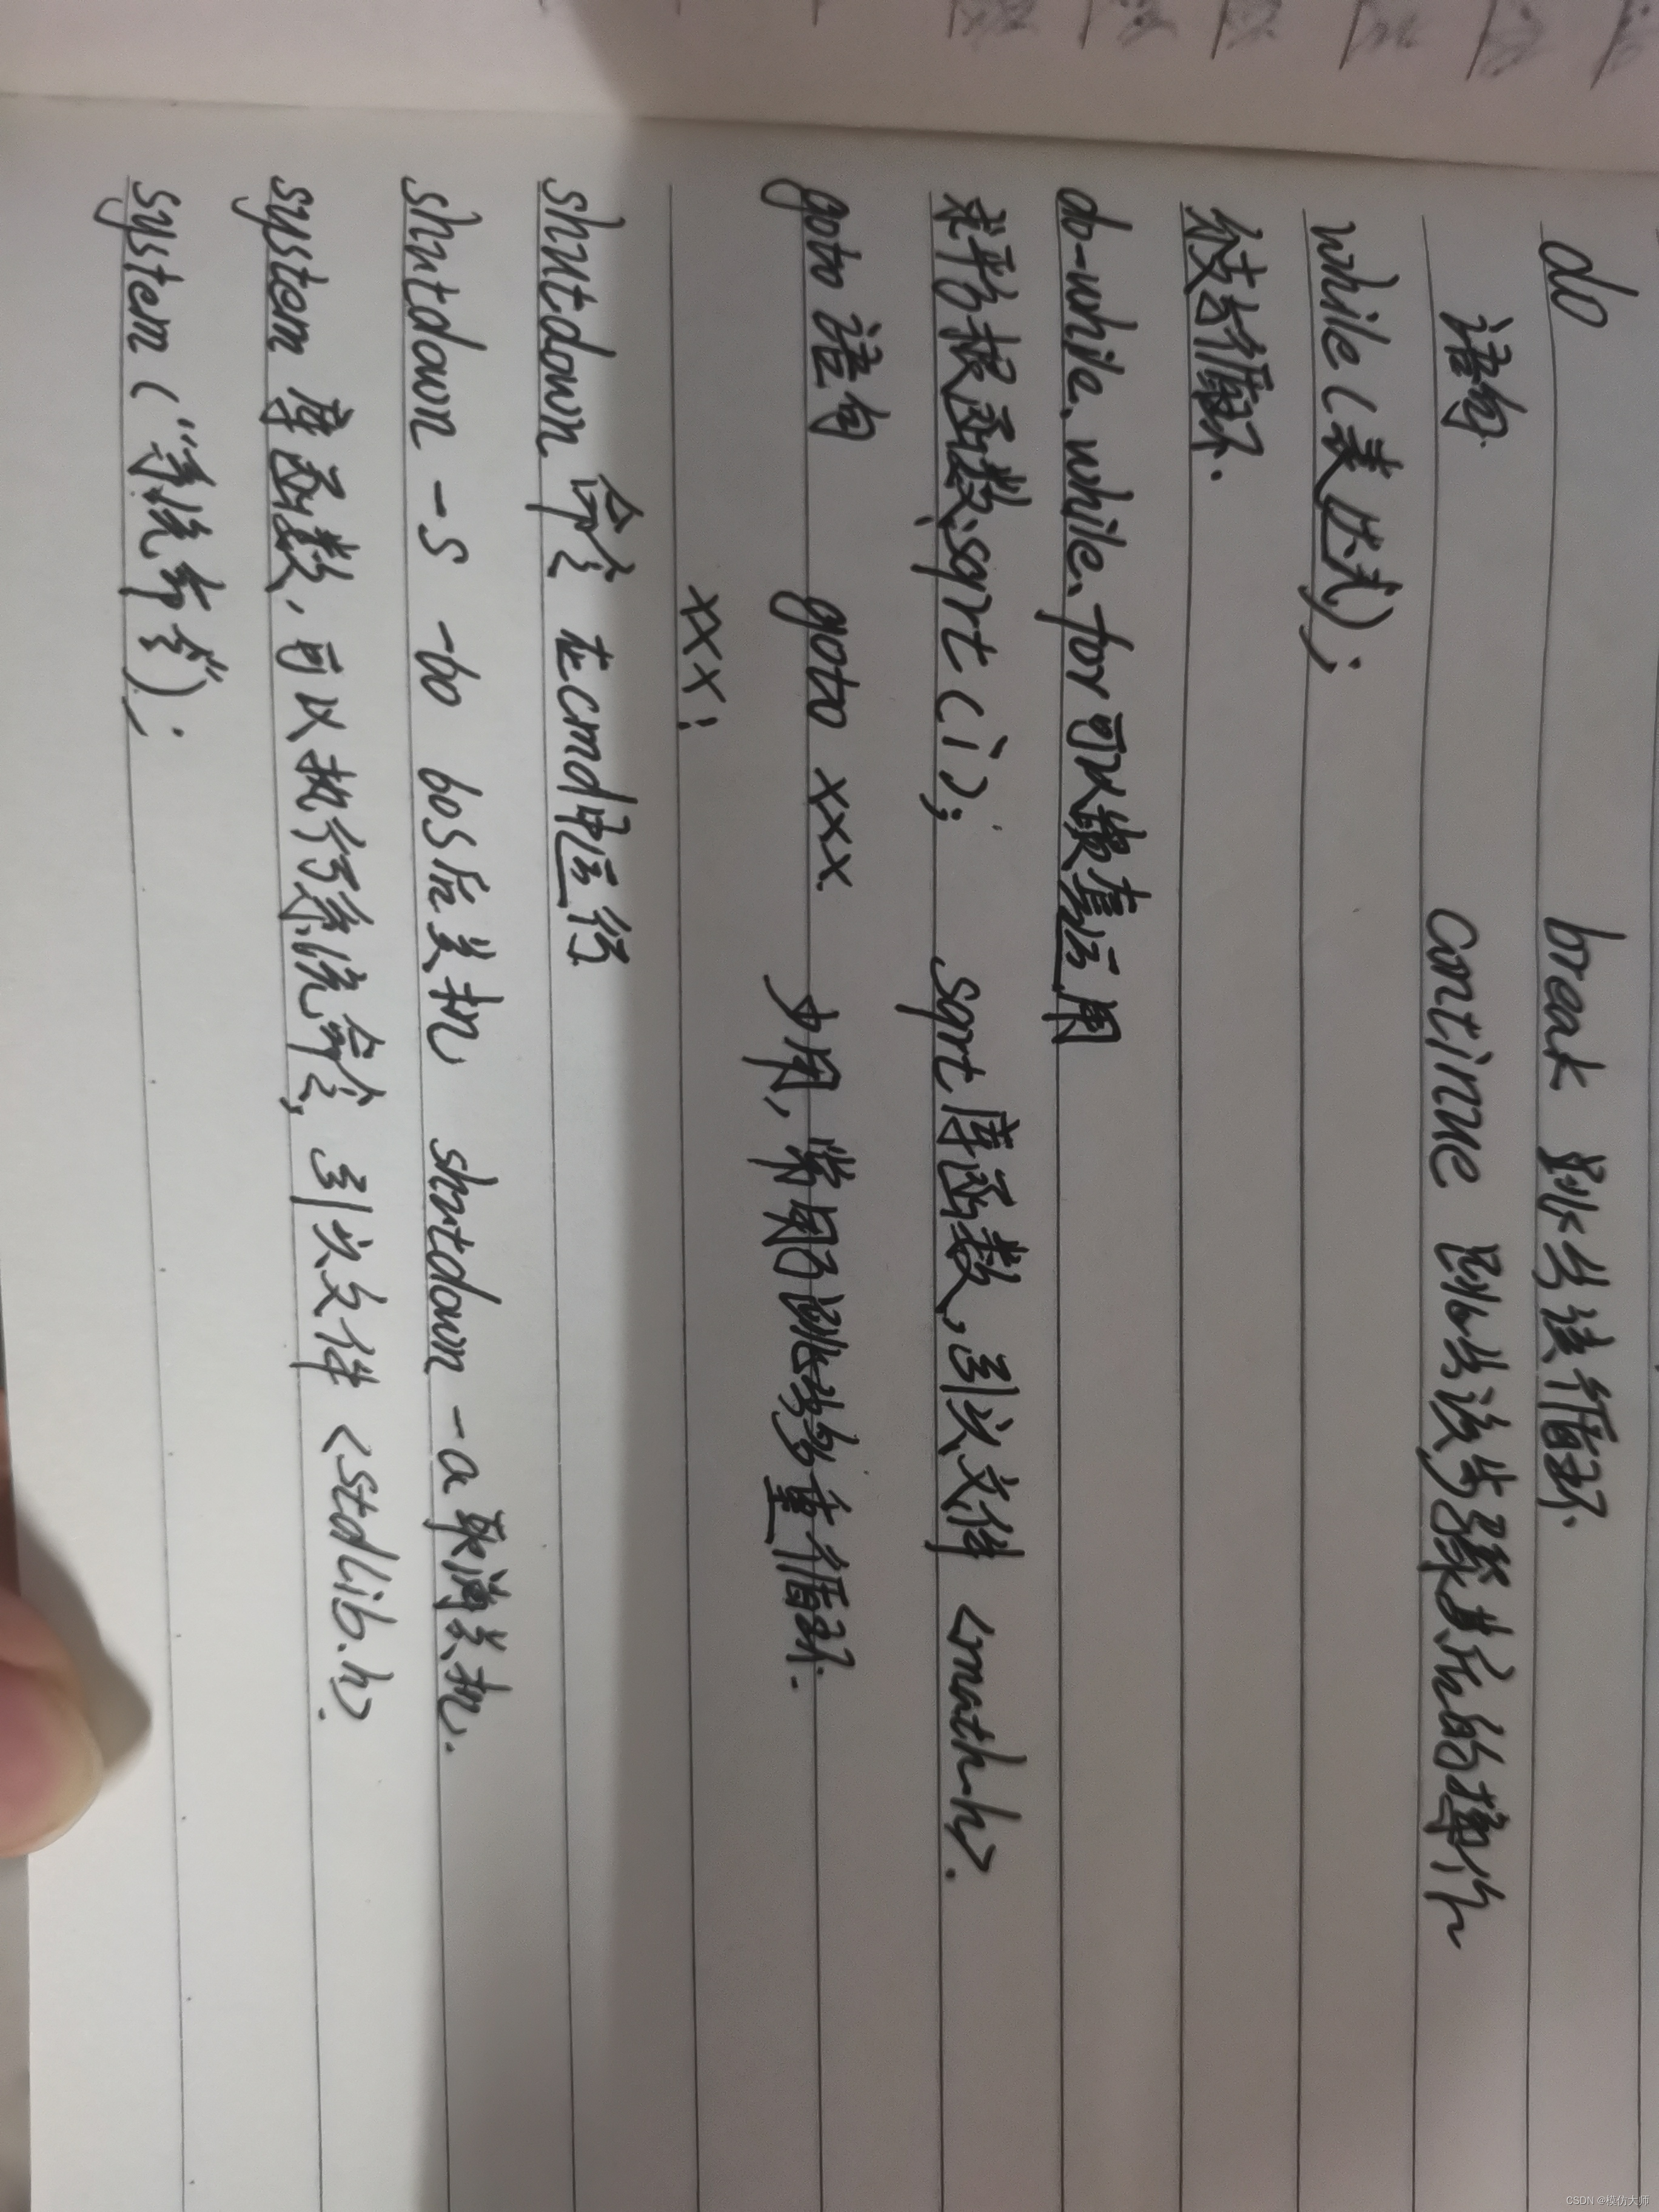 do break 跳出该循环.
语句 continue 跳出该步骤其后的操作
while(表达式);
分支与循环.
do-while、while、for可以嵌套运用
求平方根函数sqrt(i); sqrt库函数,引头文件<math.h>.
goto 语句 goto xxx. 少用,常用于跳出多重循环.
xxx:
shutdown 命令 在cmd中运行
shutdown -s -60 60s后关机 shutdown -a 取消关机.
system 库函数,可以执行系统命令,引头文件<stdlib.h>.
system("系统命令");
CSDN @模仿大师